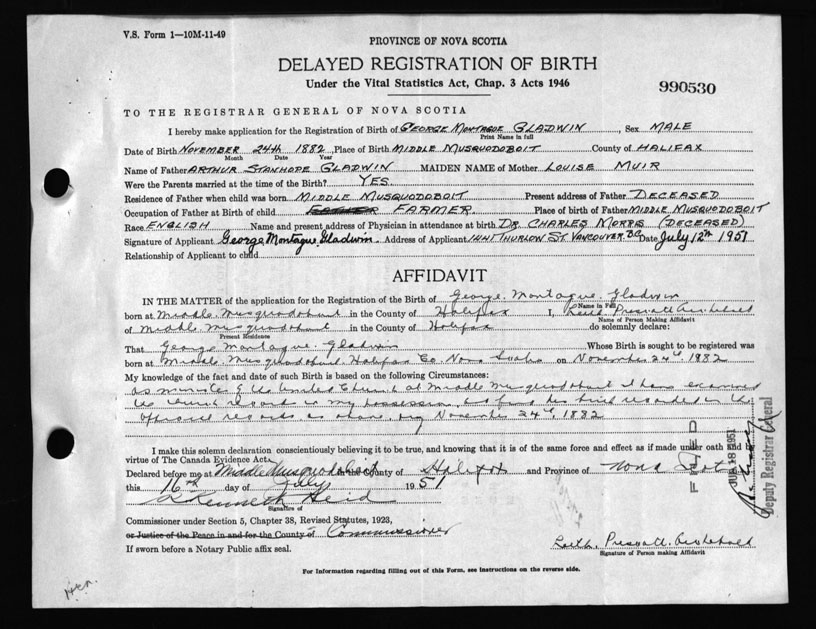 V.S. Form 1—10M-11-49
PROVINCE OF NOVA SCOTIA
DELAYED REGISTRATION OF BIRTH
Under the Vital Statistics Act, Chap. 3 Acts 1946
990530
TO THE REGISTRAR GENERAL OF NOVA SCOTIA
I hereby make application for the Registration of Birth of GEORGE MONTAGUE GLADWIN, Sex MALE
Print Name in full
Date of Birth NOVEMBER 24TH 1882 Place of Birth MIDDLE MUSQUODOBOIT County of HALIFAX
Month Date Year
Name of Father ARTHUR STANHOPE GLADWIN MAIDEN NAME of Mother LOUISE MUIR
Were the Parents married at the time of the Birth? YES
Residence of Father when child was born MIDDLE MUSQUODOBOIT Present address of Father DECEASED
Occupation of Father at Birth of child FARMER Place of birth of Father MIDDLE MUSQUODOBOIT
Race ENGLISH Name and present address of Physician in attendance at birth DR. CHARLES MORRIS (DECEASED)
Signature of Applicant George Montague Gladwin. Address of Applicant 1441 THURLOW ST. VANCOUVER B.C. Date July 12th 1951
Relationship of Applicant to child
AFFIDAVIT
IN THE MATTER of the application for the Registration of the Birth of George Montague Gladwin
Name in Full
born at Middle Musquodoboit in the County of Halifax I, Leith Prescott Archibald
Name of Person Making Affidavit
of Middle Musquodoboit in the County of Halifax do solemnly declare:
Present Residence
That George Montague Gladwin Whose Birth is sought to be registered was
born at Middle Musquodoboit Halifax Co. Nova Scotia on November 24th, 1882
My knowledge of the fact and date of such Birth is based on the following Circumstances:
As minister of the United Church at Middle Musquodoboit I have examined
the church record in my possession, and find his birth recorded in the
official records as above, November 24th, 1882
I make this solemn declaration conscientiously believing it to be true, and knowing that it is of the same force and effect as if made under oath and by
virtue of The Canada Evidence Act.
Declared before me at Middle Musquodoboit in the County of Halifax and Province of Nova Scotia
this 16th day of July 1951
Kenneth Reid
Signature of
Commissioner under Section 5, Chapter 38, Revised Statutes, 1923,
or Justice of the Peace in and for the County of Commissioner
If sworn before a Notary Public affix seal.
Leith Prescott Archibald
Signature of Person making Affidavit
For Information regarding filling out of this Form, see instructions on the reverse side.
FILED
JUL 18 1951
Deputy Registrar General